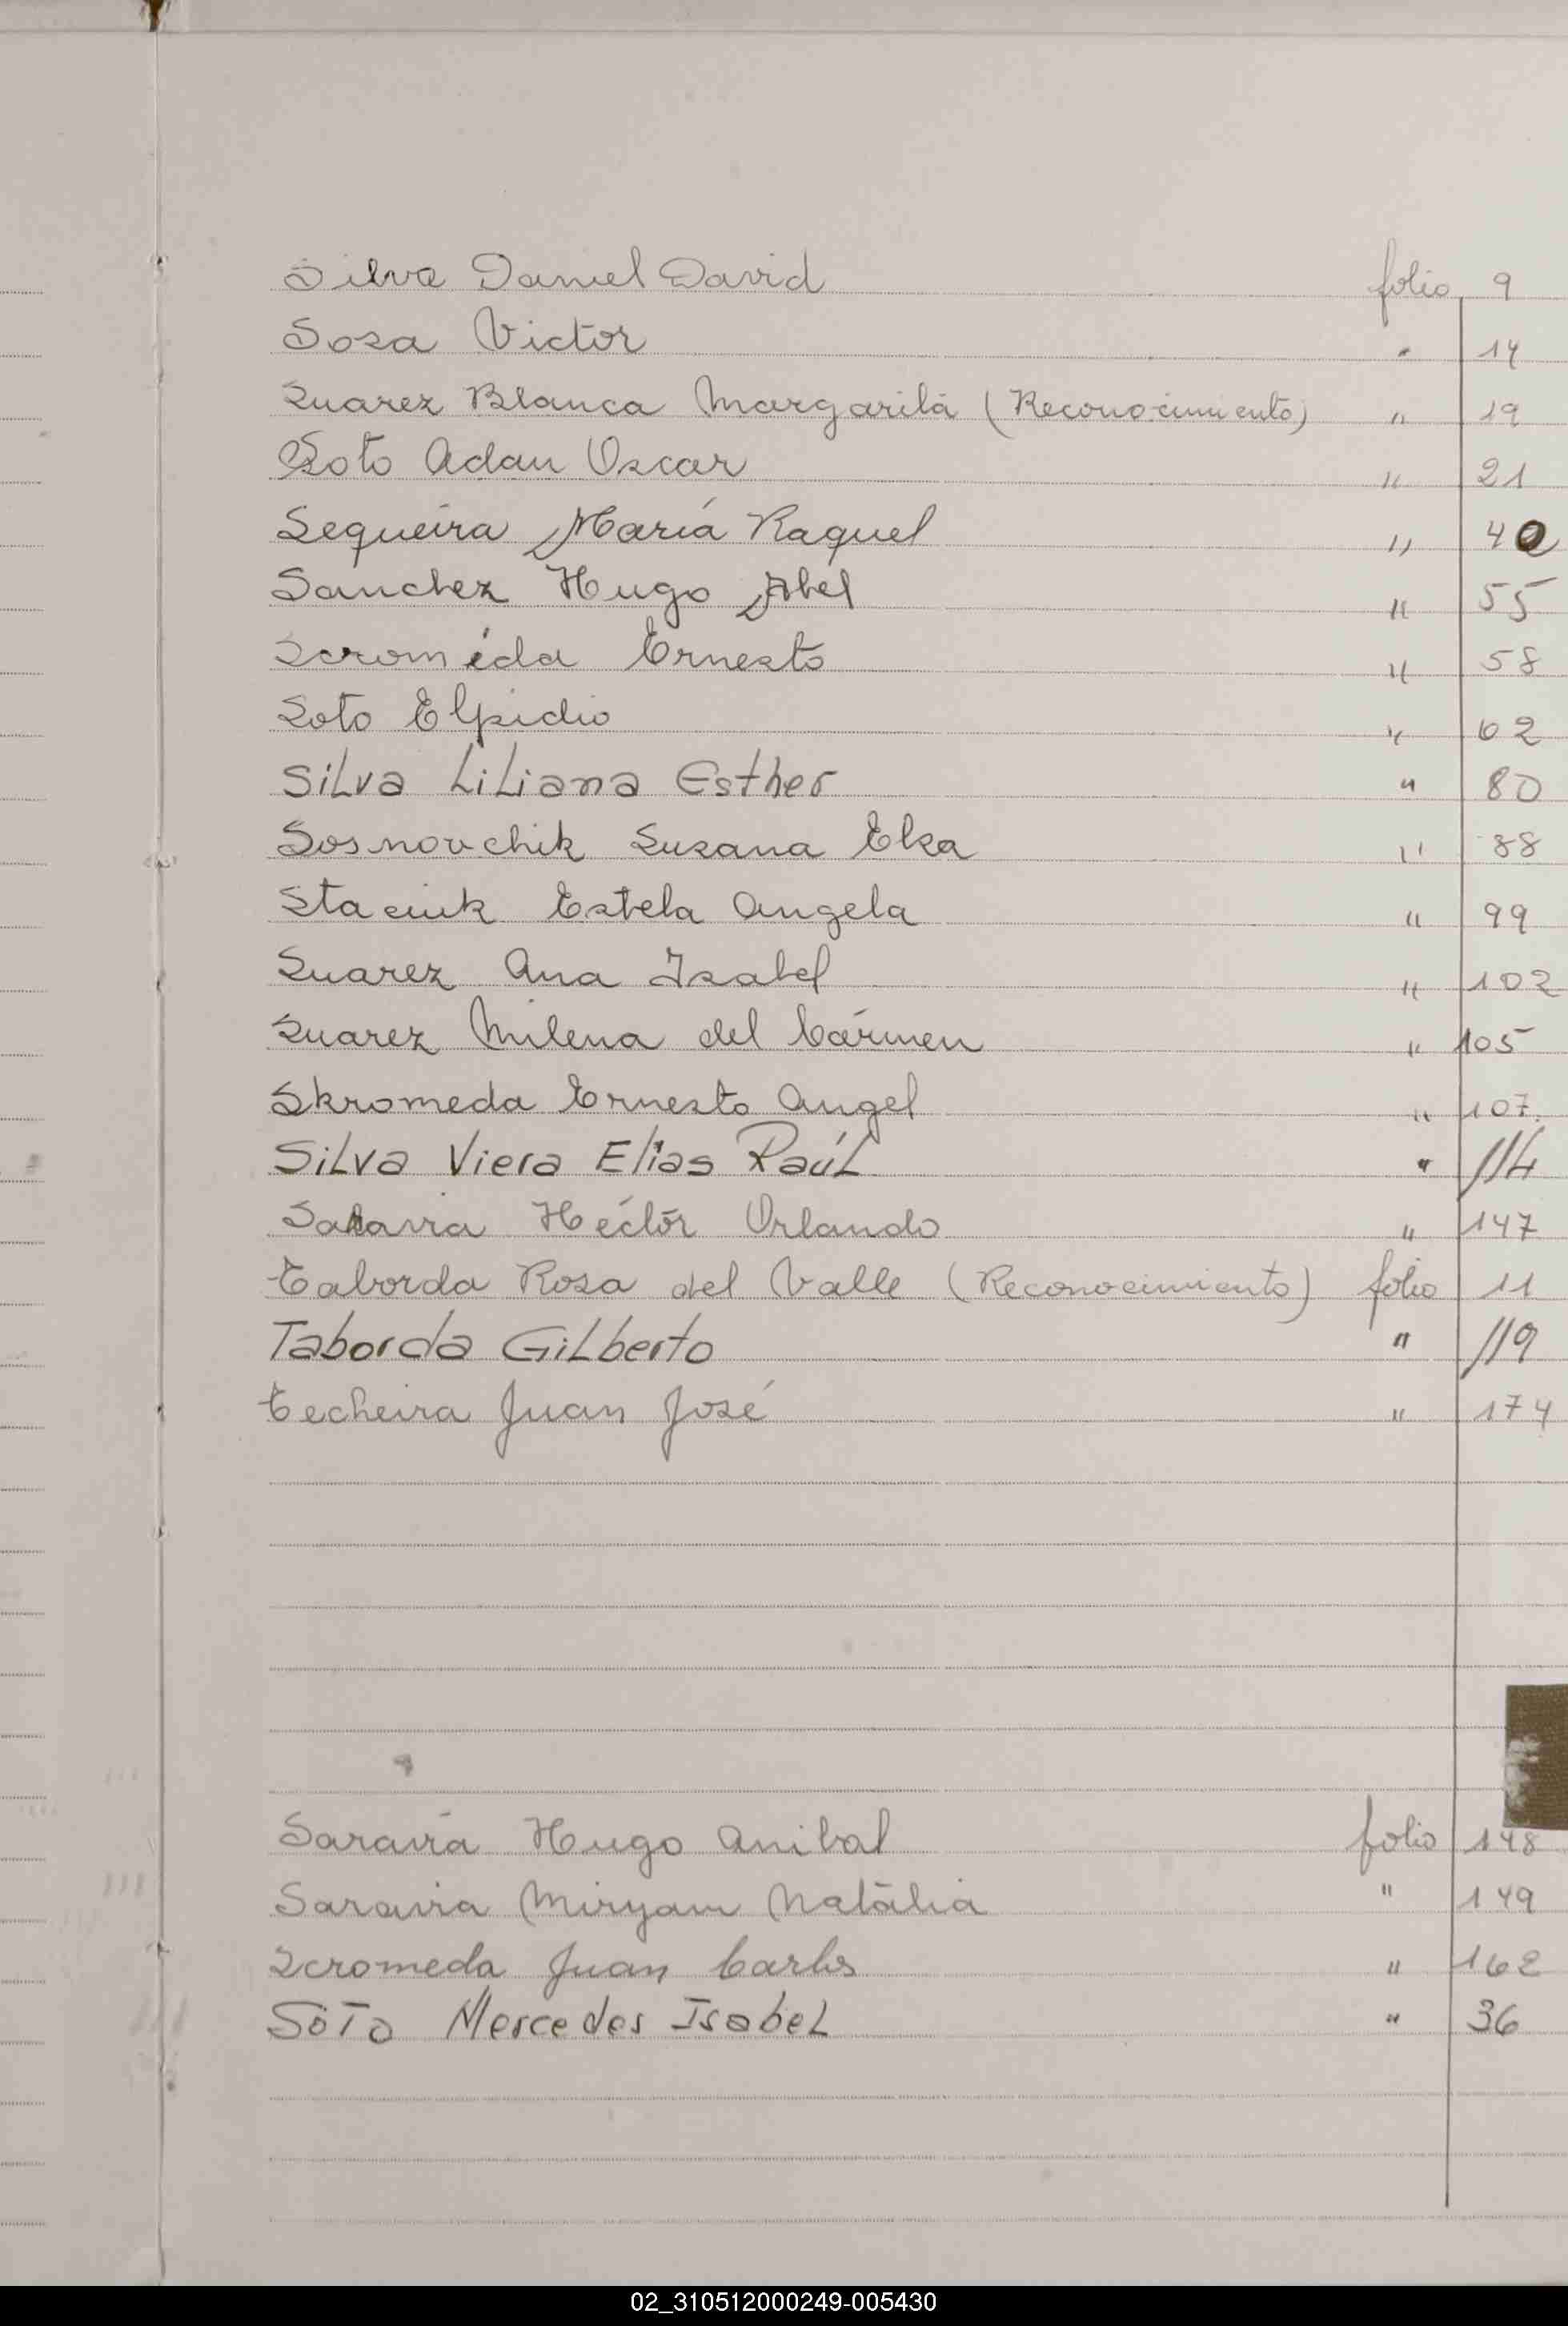 Silva Daniel David folio 9
Sosa Victor " 14
Suarez Blanca Margarita (Reconocimiento) " 19
Soto Adan Oscar " 21
Sequeira María Raquel " 40
Sanchez Hugo Abel " 55
Scroméda Ernesto " 58
Soto Elpidio " 62
Silva Liliana Esther " 80
Sosnovchik Susana Elsa " 88
Staciuk Estela Angela " 99
Suarez Ana Isabel " 102
Suarez Milena del Cármen " 105
Skromeda Ernesto Angel " 107
Silva Viera Elias Raúl " 114
Saravia Héctor Orlando " 147
Taborda Rosa del Valle (Reconocimiento) folio 11
Taborda Gilberto " 119
Techeira Juan José " 174
Saravia Hugo Anibal folio 148
Saravia Miryam Natalia " 149
Scromeda Juan Carlos " 162
Soto Mercedes Isabel " 36
02_310512000249-005430